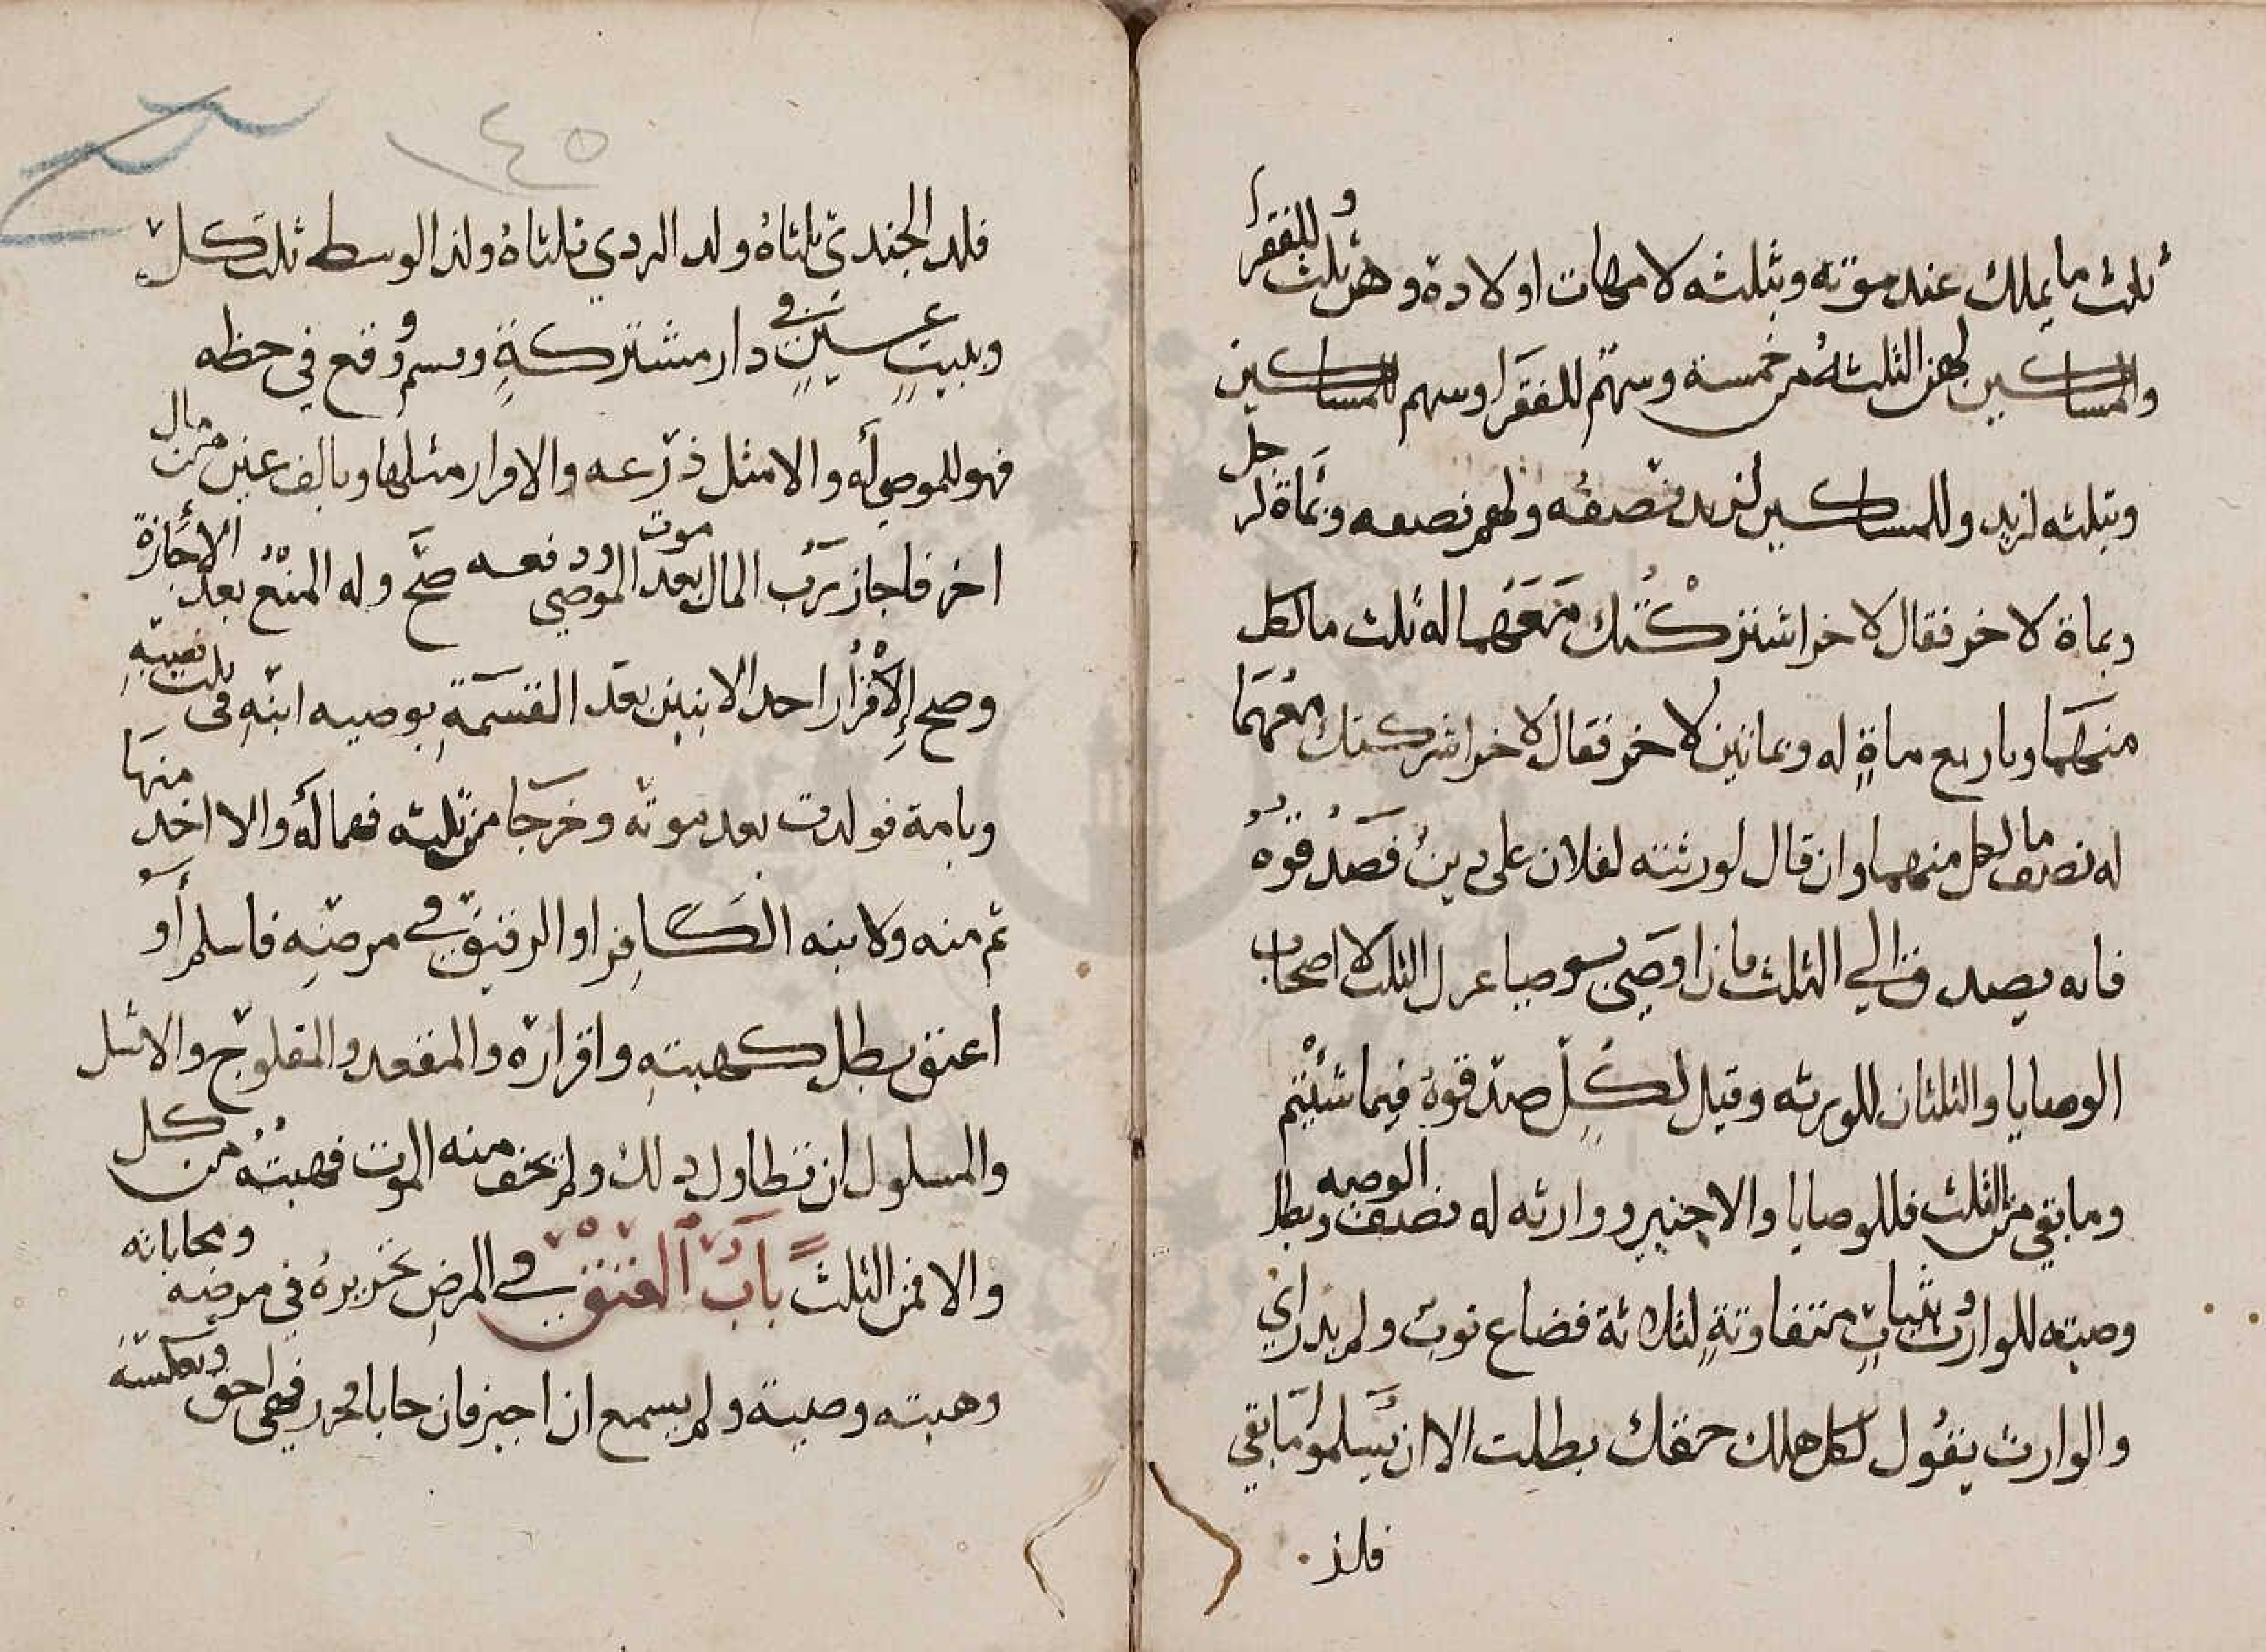 ثلث ما يملك عند موته وبثلثه لامهات اولاده وهن ثلث وللفقرا
والمساكين لهن الثلثه من خمسة وسهم للفقرا وسهم للمساكين
وبثلثه لزيد وللمساكين لزيد نصفه ولهم نصفه وبماة لرجل
وبماة لاخر فقال لاخر اشتركتك معهما له ثلث ما لكل
منهما وباربع ماة له وبماتين لاخر فقال لاخر اشركتك معهما
له نصف ما لكل منهما وان قال لورثته لفلان على دين فصدقوه
فانه يصدق الي الثلث فان اوصى بوصيا عزل الثلث لاصحاب
الوصايا والثلثان للورثه وقيل لكل صدقوه فيما شئتم
وما بقي من الثلث فللوصايا والاجنبي ووارثه له نصف الوصيه وبطل
وصيته للوارث وبثياب متفاوتة لثلاثة فضاع ثوب ولم يدر اي
والوارث يقول لكل هلك حقك بطلت الا ان يسلموا ما بقي
فلذ
١٤٥
فلد الجندى ثلثاه ولد الردي ثلثاه ولذ الوسط ثلث كل
وببيت عين في دار مشتركة وقسم ووقع في حظه
فهو للموصي له والا مثل ذرعه والاقرار مثلها وبالف عين من مال
اخر فاجاز رب المال بعد موت الموصي ودفعه صح وله المنع بعد الاجازة
وصح الاقرار احد الابنين بعد القسمة بوصيه ابنه في ثلث نصيبه
وبامة فولدت بعد موته وخرجا من ثلثه فهما له والا اخذ منها
ثم منه ولابنه الكافر او الرقيق في مرضه فاسلم او
اعتق بطل كهبته واقراره والمقعد والمفلوج والاشل
والمسلول ان تطاول ذلك ولم يخف منه الموت فهبته من كل
والا فمن الثلث باب العتق في المرض تحريره في مرضه ومحاباته
وهبته وصية ولم يسمع ان اجيز فان حابا فحرر فهي احق وبعكسه